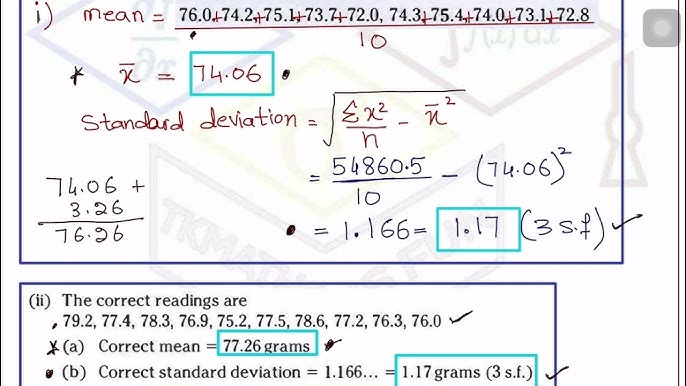 i) mean = 76.0+74.2+75.1+73.7+72.0, 74.3+75.4+74.0+73.1+72.8
10
* x̄ = 74.06 •
Standard deviation = √(Σx²/n - x̄²)
= 54860.5/10 - (74.06)²
74.06 +
3.26
76.26
• = 1.166 = 1.17 (3 s.f) ✓
(ii) The correct readings are
79.2, 77.4, 78.3, 76.9, 75.2, 77.5, 78.6, 77.2, 76.3, 76.0 ✓
* (a) Correct mean = 77.26 grams
• (b) Correct standard deviation = 1.166... = 1.17 grams (3 s.f.) ✓